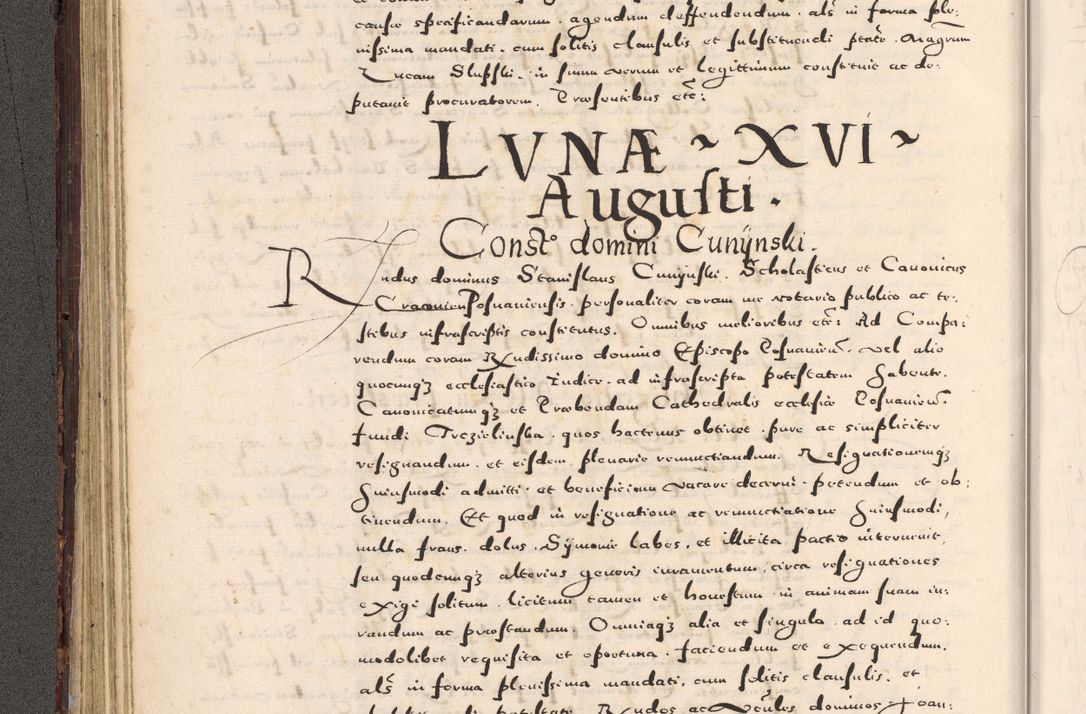 causis specificandarum. agendum deffendendum. als in forma ple:
nissima mandati. cum solitis clausulis et substituendi ptate. Magrum
Lucam Slupski. in suum verum et legittimum constituit ac de:
putauit procuratorem. Præsentibus etc:
LVNÆ ~ XVI ~
Augusti.
Const° domini Cunÿnski.
Rndus dominus Stanislaus Cunÿnski. Scholasticus et Canonicus
Posnaniensis. personaliter coram me notario publico ac te:
stibus infrascriptis constitutus. Omnibus melioribus etc: Ad Compa:
rendum coram Rndissimo domino Episcopo Posnanien. vel alio
quocunqз ecclesiastico Iudice. ad infrascripta potestatem habente.
Canonicatumqз et Præbendam Cathedralis ecclesiæ Posnanien.
fundi Trzielinska. quos hactenus obtinet. pure ac simpliciter
resignandum. et eisdem plenarie renunctiandum. Resignationemqз
huiusmodi admitti. et beneficium vacare decerni. petendum et ob:
tinendum. Et quod in resignatione ac renunctiatione huiusmodi,
nulla fraus. dolus. Sÿmoniæ labes. et illicita pactio interuenit,
seu quodcunqз alterius generis iuramentum, circa resignationes
exigi solitum. licitum tamen et honestum. in animam suam iu:
randum ac præstandum. Omniaqз alia et singula. ad id quo:
modolibet requisita et oportuna. faciendum et exequendum.
als in forma plenissima mandati, cum solitis clausulis. et
Rndos ac dominos Joan: